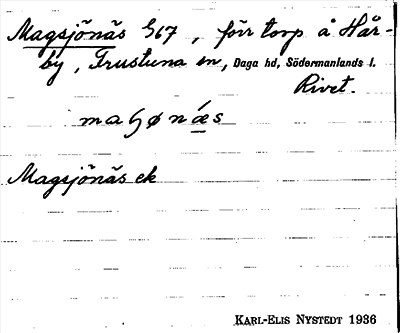 Magsjönäs G67, förr torp å Hår-
by, Frustuna sn, Daga hd, Södermanlands l.
Rivet.
Magsjönäs ek
KARL-ELIS NYSTEDT 1936